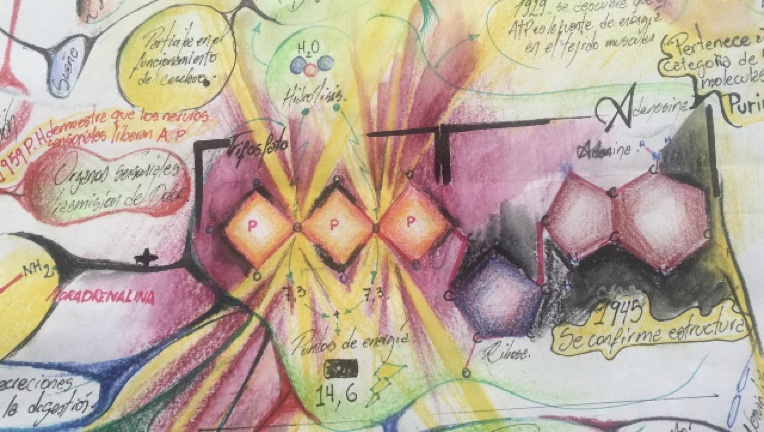 Participe en el
funcionamiento
del cerebro.
Sueño
H₂O
Hidrólisis.
1929, se descubre que
ATP es la fuente de energía
en el tejido muscular
Pertenece a
Categoría de
moleculas
Purin
1959 P. H demuestre que los nervios
sensoriales liberan A.P
Organos sensoriales
Trifosfato
Adenosine
Adenine
P
P
P
NH₂
NORADRENALINA
7,3
7,3
Puntos de energía
14,6
Ribose.
1945
Se confirme estructura
ecreciones
la digestión